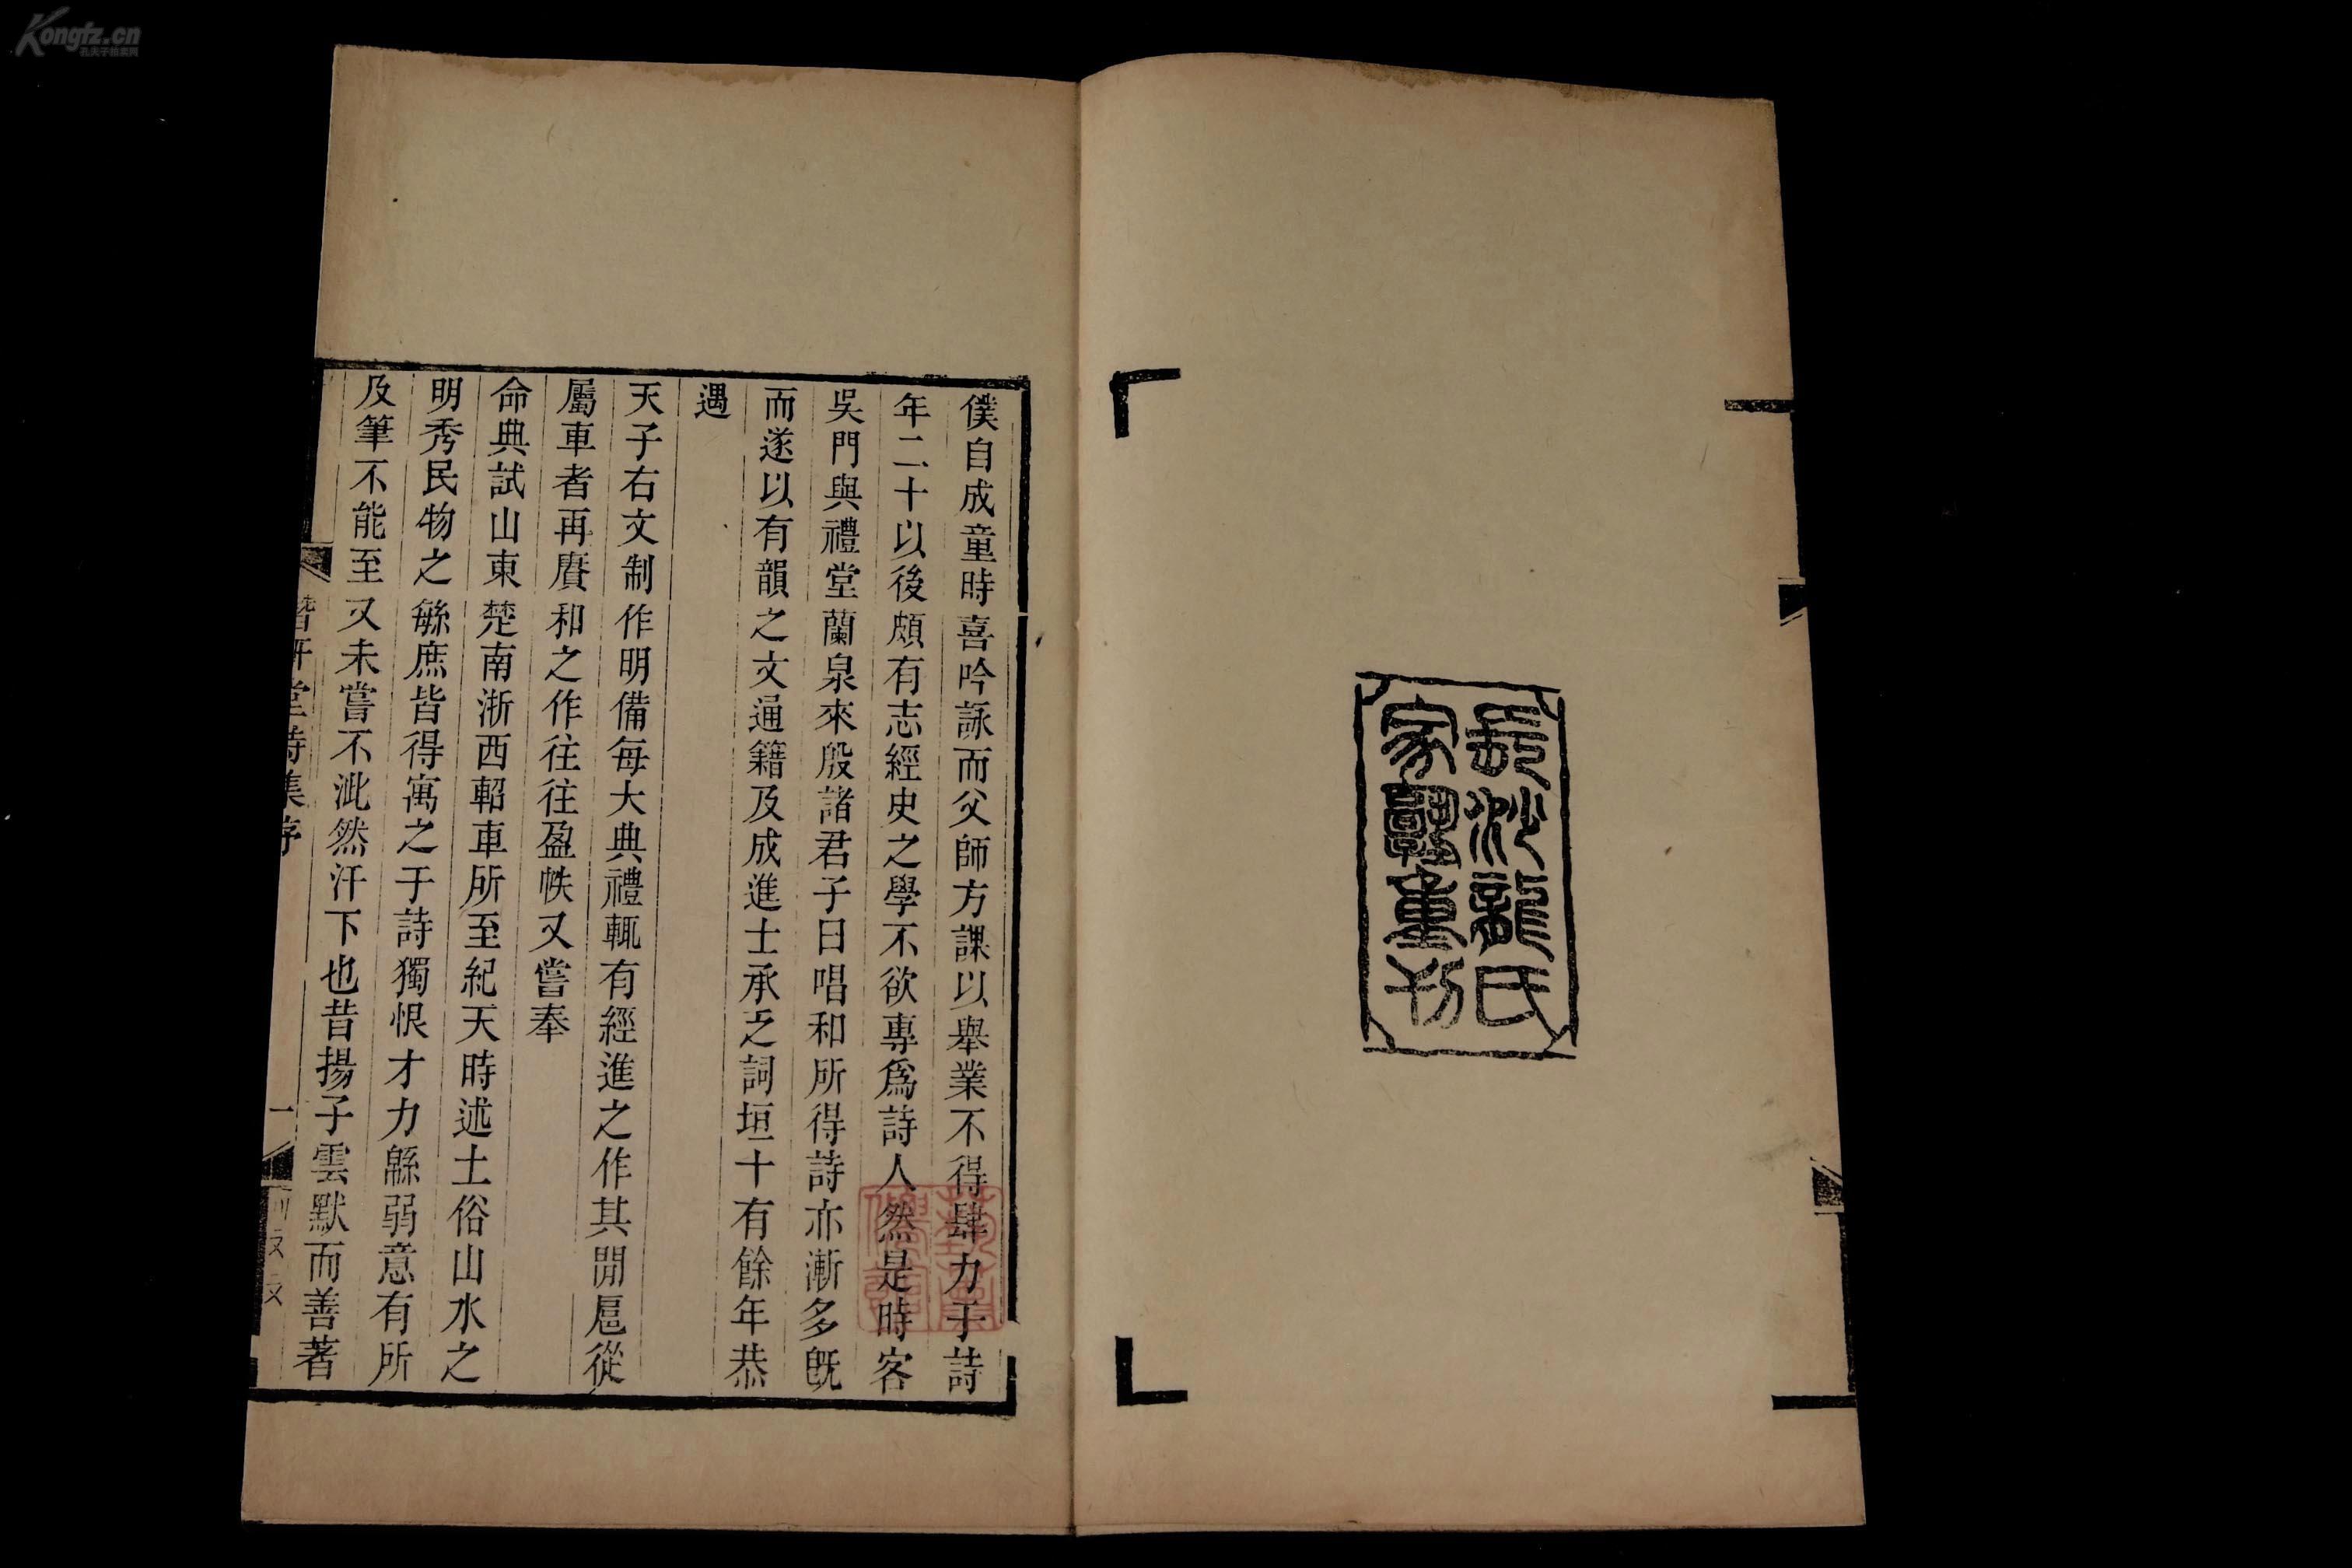 長沙龍氏
家塾重刊
僕自成童時喜吟詠而父師方課以舉業不得肆力于詩
年二十以後頗有志經史之學不欲專爲詩人然是時客
吳門與禮堂蘭泉來殷諸君子日唱和所得詩亦漸多旣
而遂以有韻之文通籍及成進士承乏詞垣十有餘年恭
遇
天子右文制作明備每大典禮輒有經進之作其閒扈從
屬車者再賡和之作往往盈帙又嘗奉
命典試山東楚南浙西軺車所至紀天時述土俗山水之
明秀民物之緐庶皆得寓之于詩獨恨才力緜弱意有所
及筆不能至又未嘗不泚然汗下也昔揚子雲默而善著
潛研堂詩集序
一
Kongfz.cn
孔夫子拍卖网